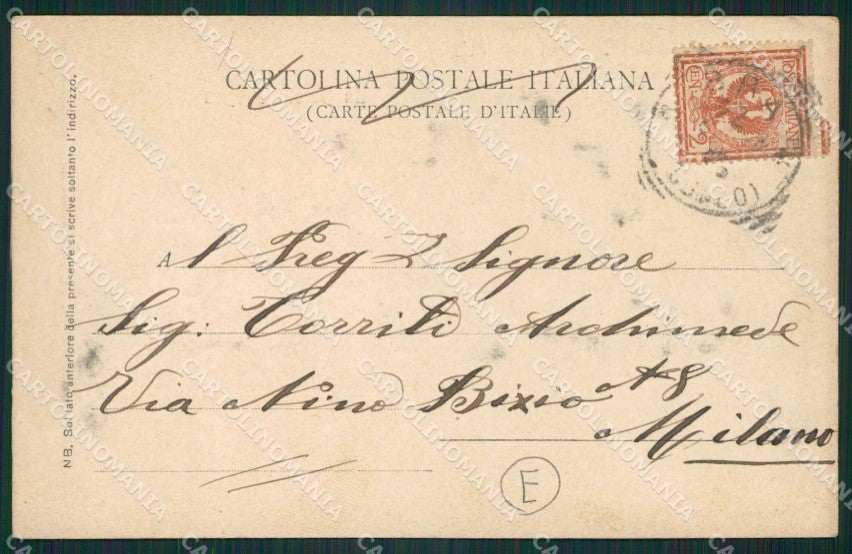 CARTOLINA POSTALE ITALIANA
(CARTE POSTALE D'ITALIE)
POSTE ITALIANE
2
(CUNEO)
Al Preg Signore
Sig: Torriti Archimede
Via Nino Bixio N 8
Milano
E
NB. Sul lato anteriore della presente si scrive soltanto l'indirizzo.
CARTOLINOMANIA